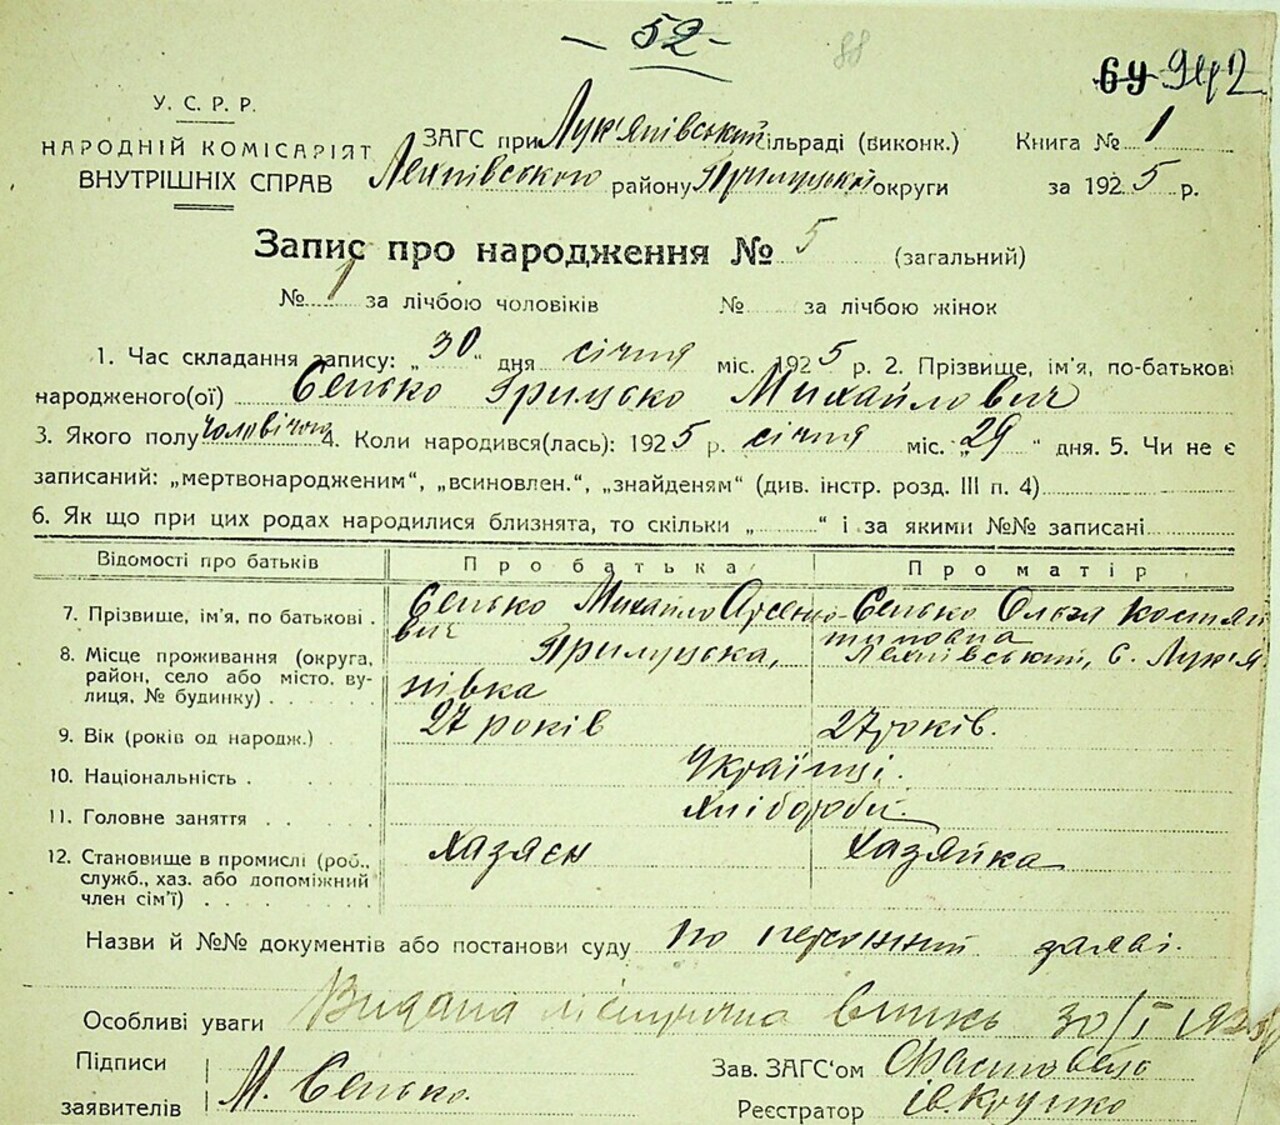 — 52 —
88
69 942
У. С. Р. Р.
НАРОДНІЙ КОМІСАРІЯТ
ВНУТРІШНІХ СПРАВ
ЗАГС при Лук'янівський сільраді (виконк.) Книга № 1
району Прилуцької округи за 1925 р.
Запис про народження № 5 (загальний)
№ 1 за лічбою чоловіків № за лічбою жінок
1. Час складання запису: „30" дня січня міс. 1925 р. 2. Прізвище, ім'я, по-батькові
народженого(ої) Сенько Грицько Михайлович
3. Якого полу чоловічого 4. Коли народився(лась): 1925 р. січня міс. „29" дня. 5. Чи не є
записаний: „мертвонародженим", „всиновлен.", „знайденям" (див. інстр. розд. III п. 4)
6. Як що при цих родах народилися близнята, то скільки „ " і за якими №№ записані
Відомості про батьків Про батька Про матір
7. Прізвище, ім'я, по батькові . Сенько Михайло Арсенович Сенько Ольга Костянтиновна
8. Місце проживання (округа, район, село або місто, вулиця, № будинку) . Прилуцька, с. Лук'янівка
9. Вік (років од народж.) . 27 років 27 років.
10. Національність . Українці.
11. Головне заняття . Хлібороби.
12. Становище в промислі (роб., служб., хаз. або допоміжний член сім'ї) . Хазяєн Хазяйка
Назви й №№ документів або постанови суду по заяві.
Особливі уваги Видана випись 30/I 1925
Підписи
заявителів М. Сенько.
Зав. ЗАГС'ом
Реєстратор Ів.